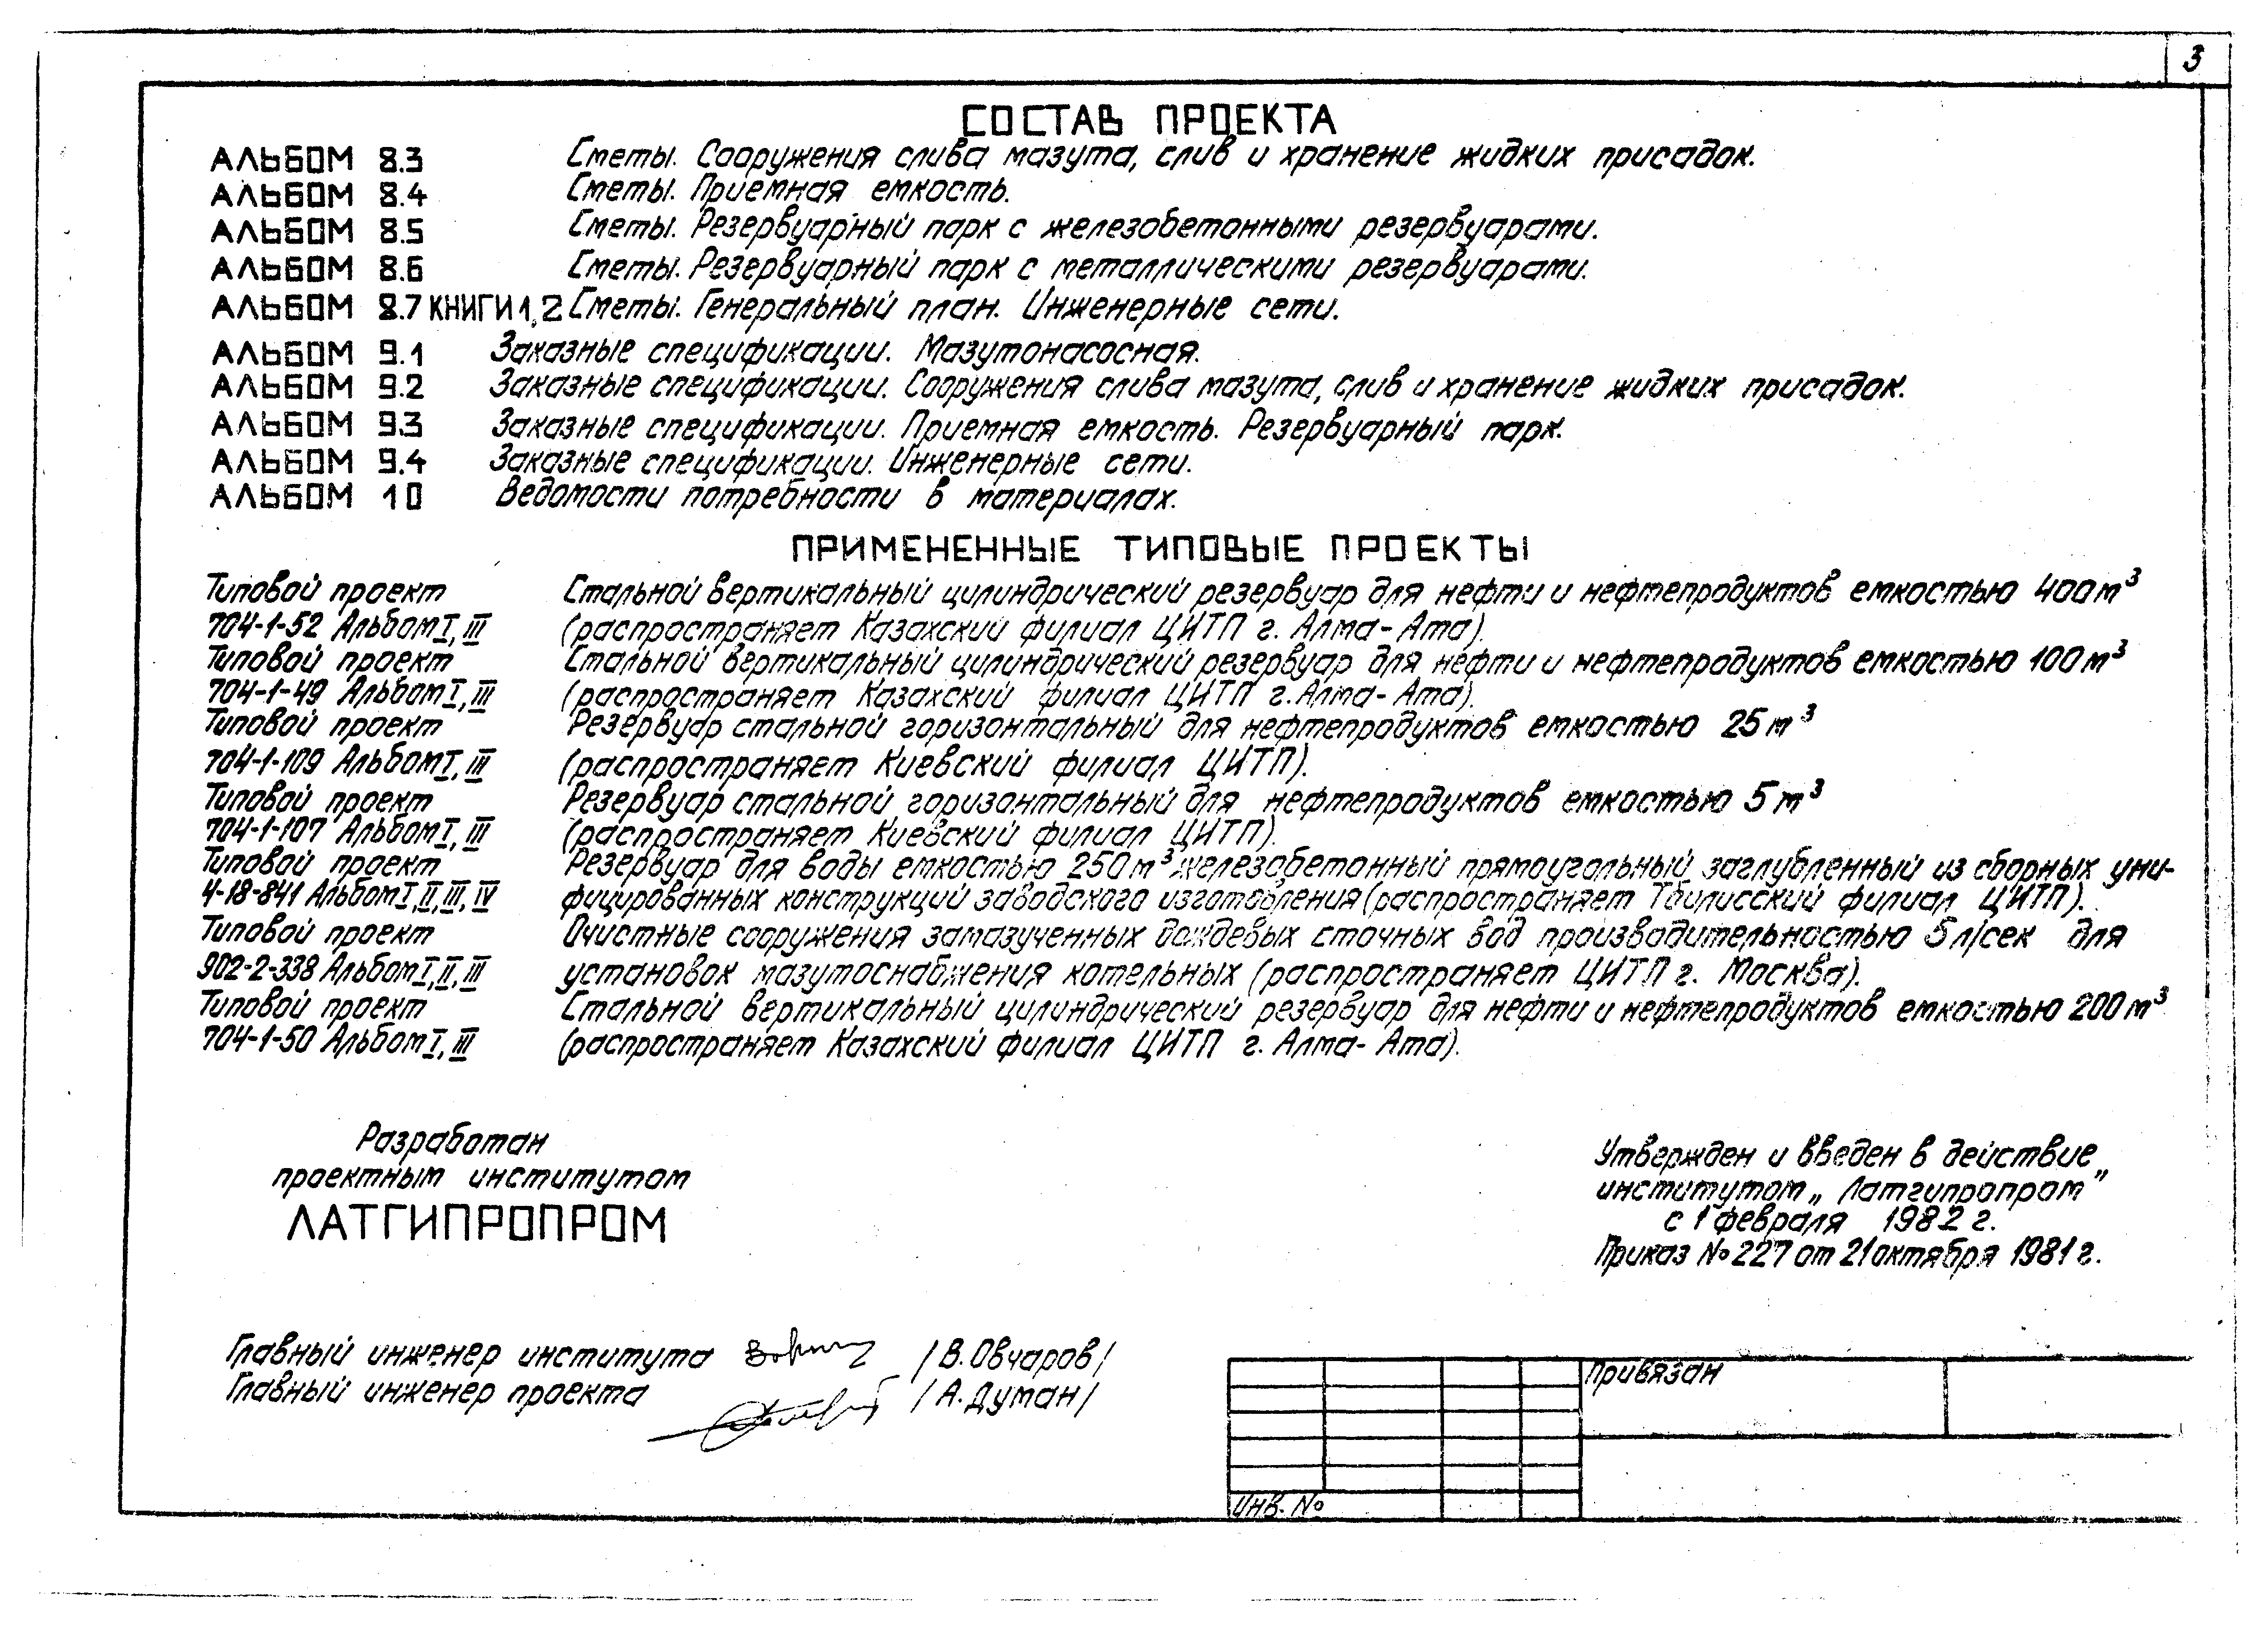 3
СОСТАВ ПРОЕКТА
АЛЬБОМ 8.3 Сметы. Сооружения слива мазута, слив и хранение жидких присадок.
АЛЬБОМ 8.4 Сметы. Приемная емкость.
АЛЬБОМ 8.5 Сметы. Резервуарный парк с железобетонными резервуарами.
АЛЬБОМ 8.6 Сметы. Резервуарный парк с металлическими резервуарами.
АЛЬБОМ 8.7 КНИГИ 1, 2 Сметы. Генеральный план. Инженерные сети.
АЛЬБОМ 9.1 Заказные спецификации. Мазутонасосная.
АЛЬБОМ 9.2 Заказные спецификации. Сооружения слива мазута, слив и хранение жидких присадок.
АЛЬБОМ 9.3 Заказные спецификации. Приемная емкость. Резервуарный парк.
АЛЬБОМ 9.4 Заказные спецификации. Инженерные сети.
АЛЬБОМ 10 Ведомости потребности в материалах.
ПРИМЕНЕННЫЕ ТИПОВЫЕ ПРОЕКТЫ
Типовой проект Стальной вертикальный цилиндрический резервуар для нефти и нефтепродуктов емкостью 400 м³
704-1-52 Альбом I, III (распространяет Казахский филиал ЦИТП г. Алма-Ата).
Типовой проект Стальной вертикальный цилиндрический резервуар для нефти и нефтепродуктов емкостью 100 м³
704-1-49 Альбом I, III (распространяет Казахский филиал ЦИТП г. Алма-Ата).
Типовой проект Резервуар стальной горизонтальный для нефтепродуктов емкостью 25 м³
704-1-109 Альбом I, III (распространяет Киевский филиал ЦИТП).
Типовой проект Резервуар стальной горизонтальный для нефтепродуктов емкостью 5 м³
704-1-107 Альбом I, III (распространяет Киевский филиал ЦИТП).
Типовой проект Резервуар для воды емкостью 250 м³ железобетонный прямоугольный заглубленный из сборных уни-
4-18-841 Альбом I, II, III, IV фицированных конструкций заводского изготовления (распространяет Тбилисский филиал ЦИТП).
Типовой проект Очистные сооружения замазученных дождевых сточных вод производительностью 5 л/сек для
902-2-338 Альбом I, II, III установок мазутоснабжения котельных (распространяет ЦИТП г. Москва).
Типовой проект Стальной вертикальный цилиндрический резервуар для нефти и нефтепродуктов емкостью 200 м³
704-1-50 Альбом I, III (распространяет Казахский филиал ЦИТП г. Алма-Ата).
Разработан
проектным институтом
ЛАТГИПРОПРОМ
Утвержден и введен в действие
институтом „Латгипропром"
с 1 февраля 1982 г.
Приказ № 227 от 21 октября 1981 г.
Главный инженер института /В. Овчаров/
Главный инженер проекта /А. Думан/
Привязан
Инв. №